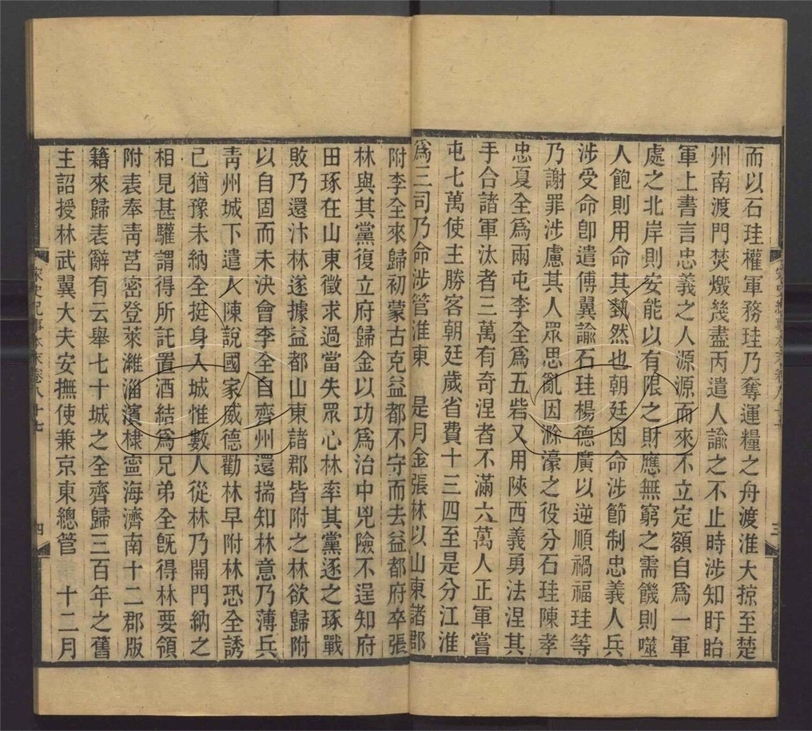 而以石珪權軍務珪乃奪運糧之舟渡淮大掠至楚
州南渡門焚燬幾盡丙遣人諭之不止時涉知盱眙
軍上書言忠義之人源源而來不立定額自爲一軍
處之北岸則安能以有限之財應無窮之需饑則噬
人飽則用命其埶然也朝廷因命涉節制忠義人兵
涉受命卽遣傅翼諭石珪楊德廣以逆順禍福珪等
乃謝罪涉慮其人眾思亂因滁濠之役分石珪陳孝
忠夏全爲兩屯李全爲五砦又用陝西義勇法涅其
手合諸軍汰者三萬有奇涅者不滿六萬人正軍嘗
屯七萬使主勝客朝廷歲省費十三四至是分江淮
爲三司乃命涉管淮東　是月金張林以山東諸郡
附李全來歸初蒙古克益都不守而去益都府卒張
林與其黨復立府歸金以功爲治中兇險不逞知府
田琢在山東徵求過當失眾心林率其黨逐之琢戰
敗乃還汴林遂據益都山東諸郡皆附之林欲歸附
以自固而未決會李全自齊州還揣知林意乃薄兵
靑州城下遣人陳說國家威德勸林早附林恐全誘
己猶豫未納全挺身入城惟數人從林乃開門納之
相見甚驩謂得所託置酒結爲兄弟全旣得林要領
附表奉靑莒密登萊濰淄濱棣寧海濟南十二郡版
籍來歸表辭有云舉七十城之全齊歸三百年之舊
主詔授林武翼大夫安撫使兼京東總管　十二月
宋史紀事本末卷八十七
四
三